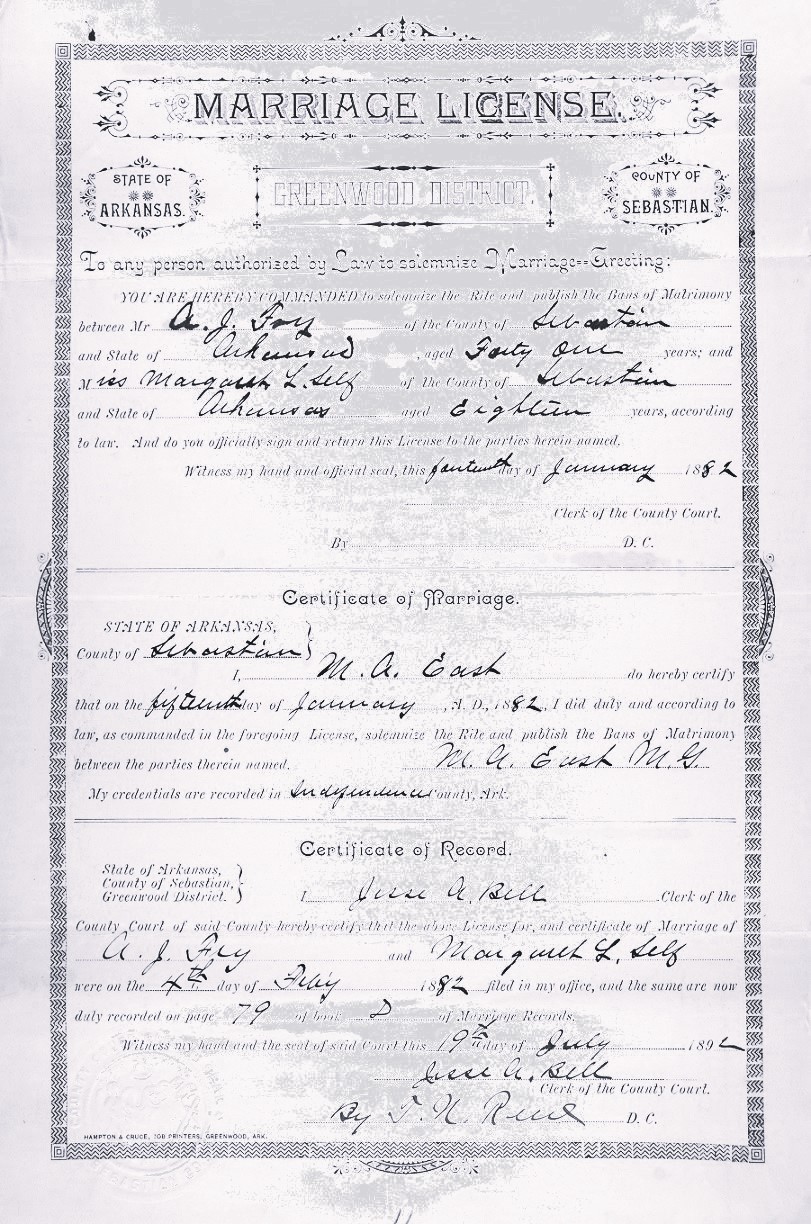 MARRIAGE LICENSE.
STATE OF ARKANSAS.
GREENWOOD DISTRICT.
COUNTY OF SEBASTIAN.
To any person authorized by Law to solemnize Marriage--Greeting:
YOU ARE HEREBY COMMANDED to solemnize the Rite and publish the Bans of Matrimony
between Mr A. J. Fry of the County of Sebastian
and State of Arkansas, aged Forty One years; and
Miss Margaret L. Self of the County of Sebastian
and State of Arkansas aged Eighteen years, according
to law. And do you officially sign and return this License to the parties herein named.
Witness my hand and official seal, this fourteenth day of January 1882
Clerk of the County Court.
By D. C.
Certificate of Marriage.
STATE OF ARKANSAS,
County of Sebastian
I, M. A. East do hereby certify
that on the fifteenth day of January, A. D., 1882, I did duly and according to
law, as commanded in the foregoing License, solemnize the Rite and publish the Bans of Matrimony
between the parties therein named. M. A. East M. G.
My credentials are recorded in Independence County, Ark.
Certificate of Record.
State of Arkansas,
County of Sebastian,
Greenwood District.
I Jesse A. Bell Clerk of the
County Court of said County hereby certify that the above License for, and certificate of Marriage of
A. J. Fry and Margaret L. Self
were on the 4th day of Feby 1882 filed in my office, and the same are now
duly recorded on page 79 of book D of Marriage Records.
Witness my hand and the seal of said Court this 19th day of July 1892
Jesse A. Bell
Clerk of the County Court.
By T. N. D. C.
HAMPTON & CRUCE, JOB PRINTERS, GREENWOOD, ARK.